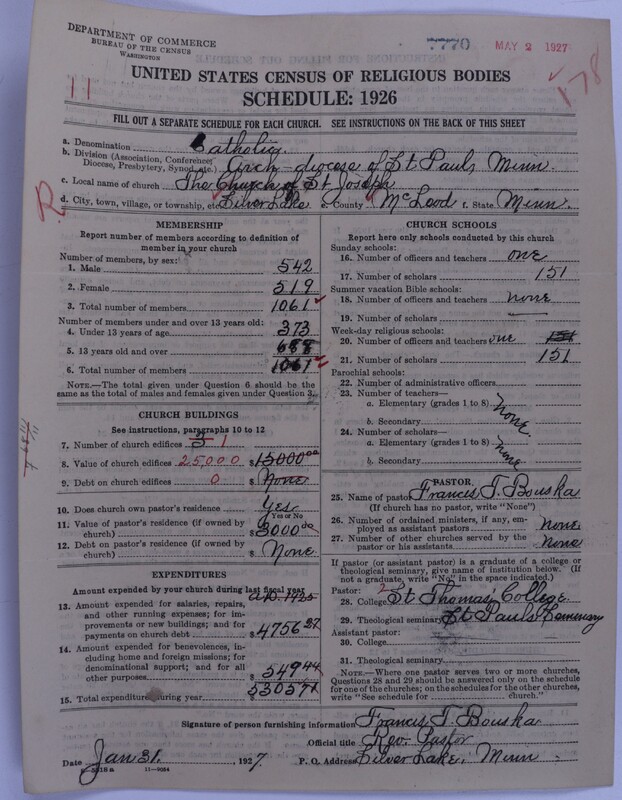 DEPARTMENT OF COMMERCE
BUREAU OF THE CENSUS
WASHINGTON
7770
MAY 2 1927
178
11
UNITED STATES CENSUS OF RELIGIOUS BODIES
SCHEDULE: 1926
FILL OUT A SEPARATE SCHEDULE FOR EACH CHURCH. SEE INSTRUCTIONS ON THE BACK OF THIS SHEET
a. Denomination Catholic
b. Division (Association, Conference, Diocese, Presbytery, Synod, etc.) Arch-diocese of St Pauls Minn.
c. Local name of church The Church of St Joseph
R
d. City, town, village, or township, etc. Silver Lake e. County McLeod f. State Minn.
MEMBERSHIP
Report number of members according to definition of
member in your church
Number of members, by sex:
1. Male 542
2. Female 519
3. Total number of members 1061
Number of members under and over 13 years old:
4. Under 13 years of age 373
5. 13 years old and over 688
6. Total number of members 1061
NOTE.—The total given under Question 6 should be
same as the total of males and females given under Question 3.
CHURCH BUILDINGS
See instructions, paragraphs 10 to 12
7. Number of church edifices 1
8. Value of church edifices 25,000 $ 15000 00
9. Debt on church edifices 0 $ None
10. Does church own pastor's residence Yes
Yes or No
11. Value of pastor's residence (if owned by
church) $ 3000 00
12. Debt on pastor's residence (if owned by
church) $ None
EXPENDITURES
Amount expended by your church during last fiscal year
13. Amount expended for salaries, repairs,
and other running expenses; for im-
provements or new buildings; and for
payments on church debt $ 4756 27
14. Amount expended for benevolences,
including home and foreign missions; for
denominational support; and for all
other purposes $ 549 44
15. Total expenditures during year 5305 71
CHURCH SCHOOLS
Report here only schools conducted by this church
Sunday schools:
16. Number of officers and teachers one
17. Number of scholars 151
Summer vacation Bible schools:
18. Number of officers and teachers none
19. Number of scholars
Week-day religious schools:
20. Number of officers and teachers one 151
21. Number of scholars 151
Parochial schools:
22. Number of administrative officers
23. Number of teachers—
a. Elementary (grades 1 to 8) none
b. Secondary
24. Number of scholars—
a. Elementary (grades 1 to 8) none
b. Secondary
PASTOR
25. Name of pastor Francis T. Bouska
(If church has no pastor, write "None")
26. Number of ordained ministers, if any, em-
ployed as assistant pastors none
27. Number of other churches served by the
pastor or his assistants none
If pastor (or assistant pastor) is a graduate of a college or
theological seminary, give name of institution below. (If
not a graduate, write "No" in the space indicated.)
Pastor:
28. College St Thomas' College
29. Theological seminary St Pauls Seminary
Assistant pastor:
30. College
31. Theological seminary
NOTE.—Where one pastor serves two or more churches,
Questions 28 and 29 should be answered only on the schedule
for one of the churches; on the schedules for the other churches,
write "See schedule for church."
Signature of person furnishing information Francis T. Bouska
Official title Rev. Pastor
Date Jan 31, 1927 P. O. Address Silver Lake, Minn.
11—9064